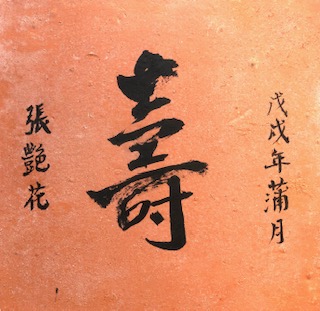 戊戌年蒲月
壽
張艷花